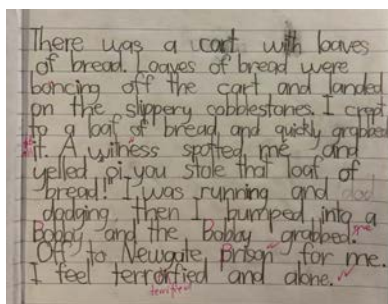 There was a cart with loaves
of bread. Loaves of bread were
boncing off the cart and landed
on the slippery cobblestones. I crep
to a loaf of bread and quickly grabbed
it. A witness spotted me and
yelled "oi you stole that loaf of
bread!" I was running and
dodging then I bumped into a
Bobby and the Bobby grabbed. me
Off to Newgate Prison for me.
I feel terroirfied and alone.
terrified